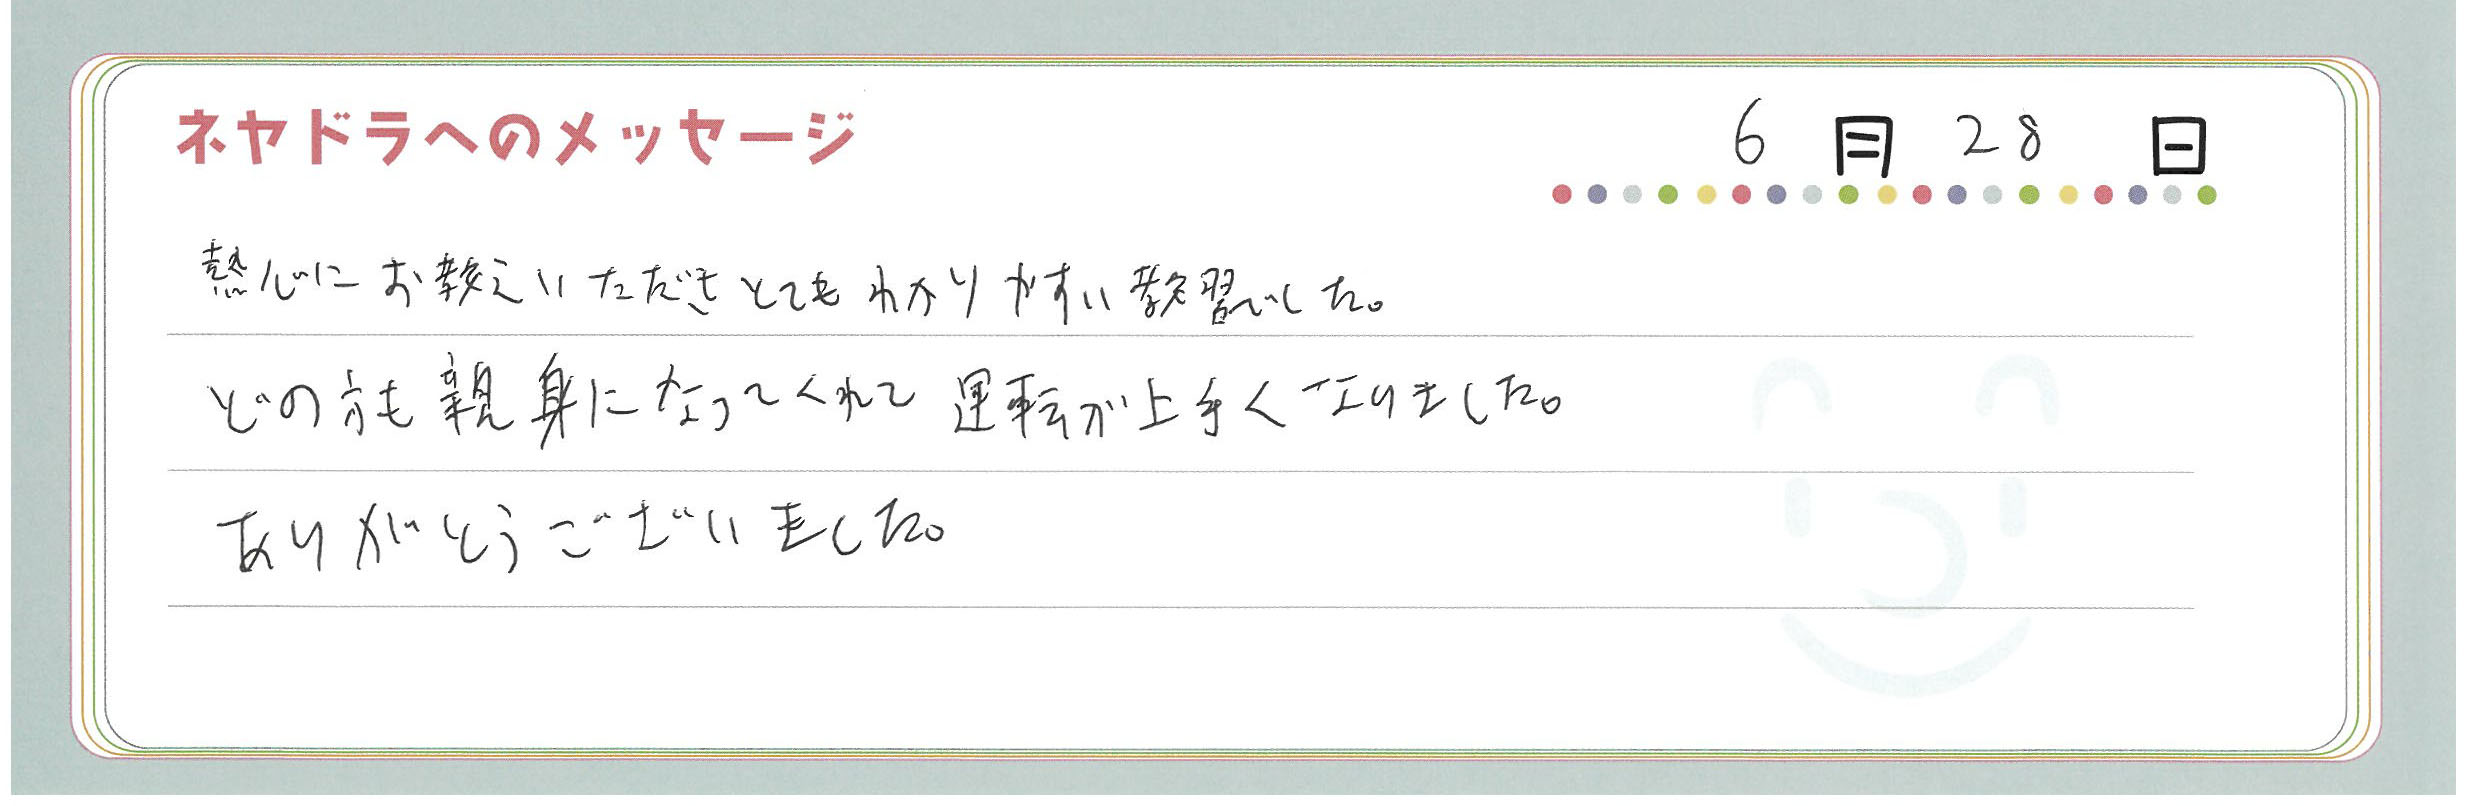 ネヤドラへのメッセージ
6月28日
熱心にお教えいただきとてもわかりやすい教習でした。
どの方も親身になってくれて運転が上手くなりました。
ありがとうございました。